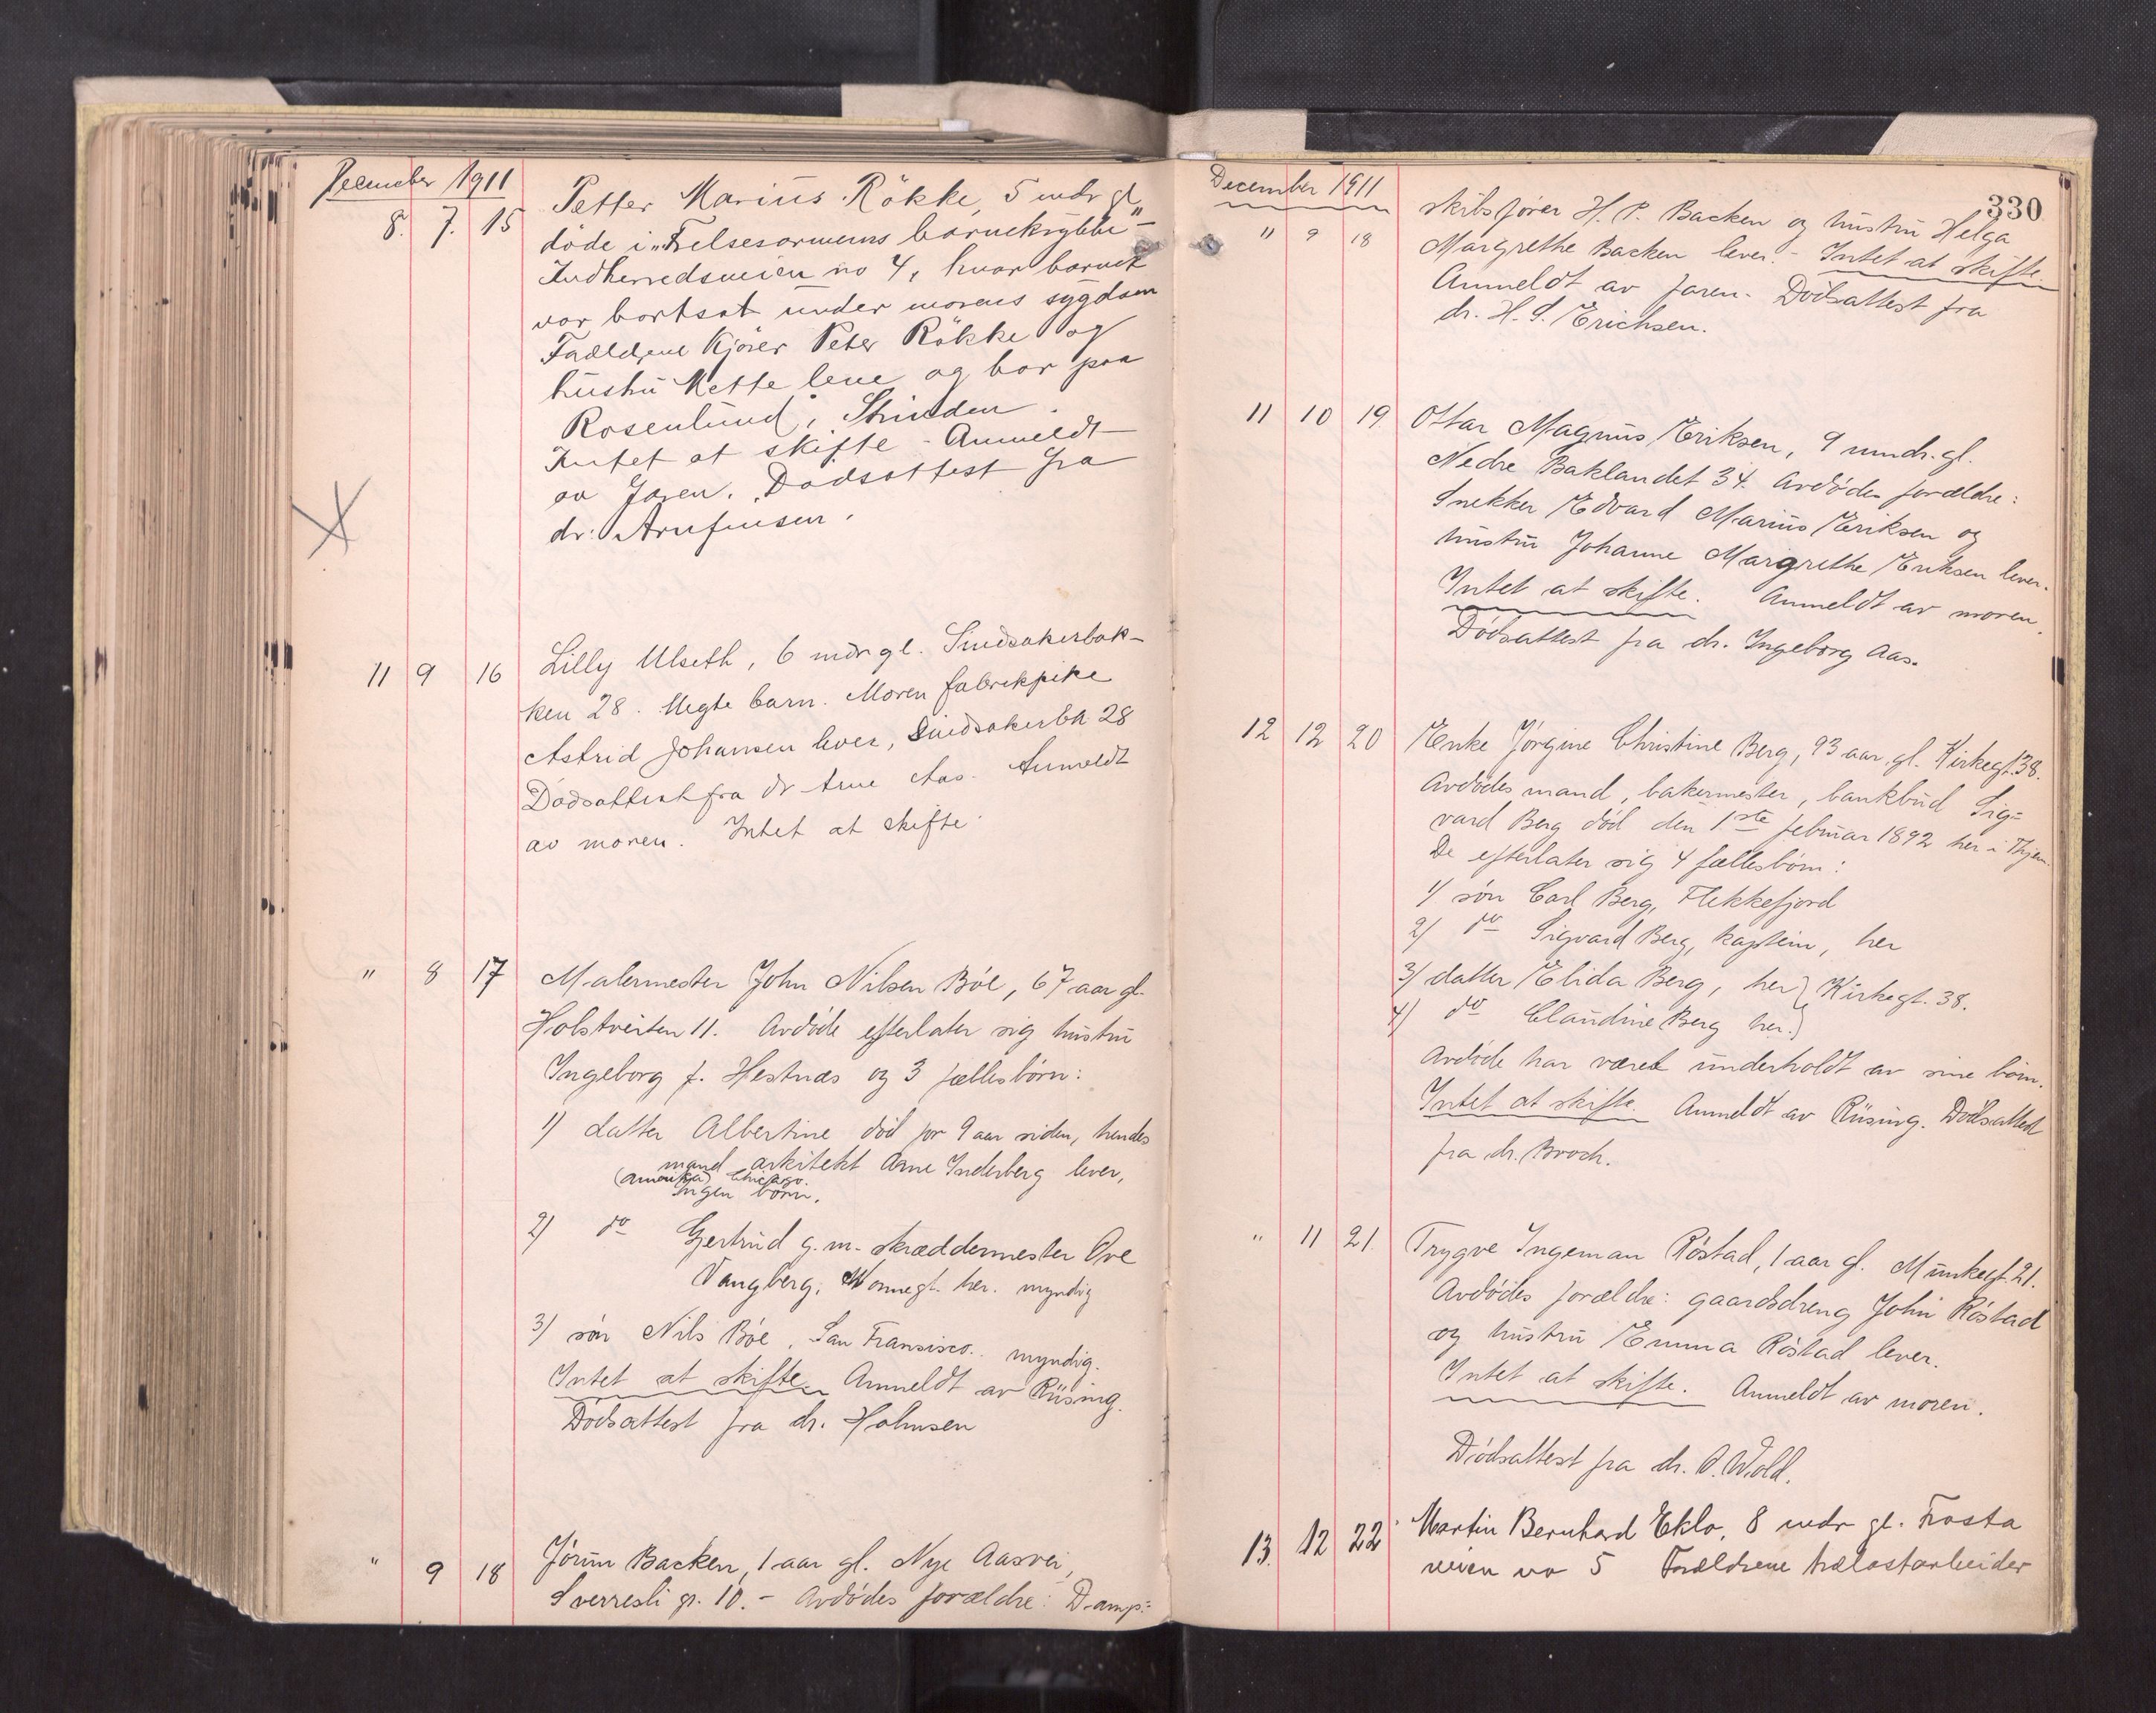 December 1911
8. 7. 15 Petter Marius Rökke, 5 mdr gl
döde i „Frelsesarmeens barnekrybbe"-
Indherredsveien no 4, hvor barnet
var bortsat under morens sygdom
Forældrene Kjörer Peter Rökke og
hustru Mette leve og bor paa
Rosenlund, Strinden.
Intet at skifte - Anmeldt
av Faren. Dödsattest fra
dr. Arnfinsen.
11 9 16 Lilly Ulseth, 6 mdr gl. Sindsakerbak-
ken 28. Uegte barn. Moren fabrikpike
Astrid Johansen lever, Sindsakerbk 28
Dødsattest fra dr Arne Aas. Anmeldt
av moren. Intet at skifte.
" 8 17 Malermester John Nilsen Böe, 67 aar gl.
Holstveiten 11. Avdöde efterlater sig hustru
Ingeborg f. Hestnæs og 3 fællesbörn:
1) datter Albertine död for 9 aar siden, hendes
mand arkitekt Arne Inderberg lever,
(Amerika) Chicago.
Ingen börn.
2) do Gjertrud g. m. skræddermester Ove
Vangberg, Vonnegt. her. myndig
3) sön Nils Böe, San Fransisco. myndig.
Intet at skifte Anmeldt av Rüsing.
Dödsattest fra dr. Holmsen
" 9 18 Jörun Backen, 1 aar gl. Nye Aasvei,
Sverresli gr. 10. - Avdödes forældre: Damp-
December 1911
330
" 9 18 skibsförer H. P. Backen og hustru Helga
Margrethe Backen lever. - Intet at skifte.
Anmeldt av faren. Dödsattest fra
dr. H. S. Erichsen.
11 10 19 Ottar Magnus Eriksen, 9 mndr. gl.
Nedre Baklandet 34. Avdödes forældre:
Snekker Edvard Marius Eriksen og
hustru Johanne Margrethe Eriksen lever.
Intet at skifte. Anmeldt av moren.
Dödsattest fra dr. Ingeborg Aas.
12 12 20 Enke Jörgine Christine Berg, 93 aar. gl. Kirkegt. 38.
Avdödes mand, bakermester, bankbud Sig-
vard Berg död den 1ste februar 1892 her i Thjem.
De efterlater sig 4 fællesbörn:
1) sön Carl Berg, Flekkefjord
2) do Sigvard Berg, kaptein, her
3) datter Elida Berg, her } Kirkegt. 38.
4) do Claudine Berg her. }
Avdöde har været underholdt av sine börn.
Intet at skifte. Anmeldt av Rüsing. Dödsattest
fra dr. Broch.
" 11 21. Trygve Ingeman Röstad, 1 aar gl. Munkegt. 21.
Avdödes forældre: gaardsdreng John Röstad
og hustru Emma Röstad lever.
Intet at skifte. Anmeldt av moren.
Dödsattest fra dr. O. Wold.
13. 12 22 Martin Bernhard Eklo, 8 mdr gl. Frosta
veien no 5 Forældrene trælastarbeider